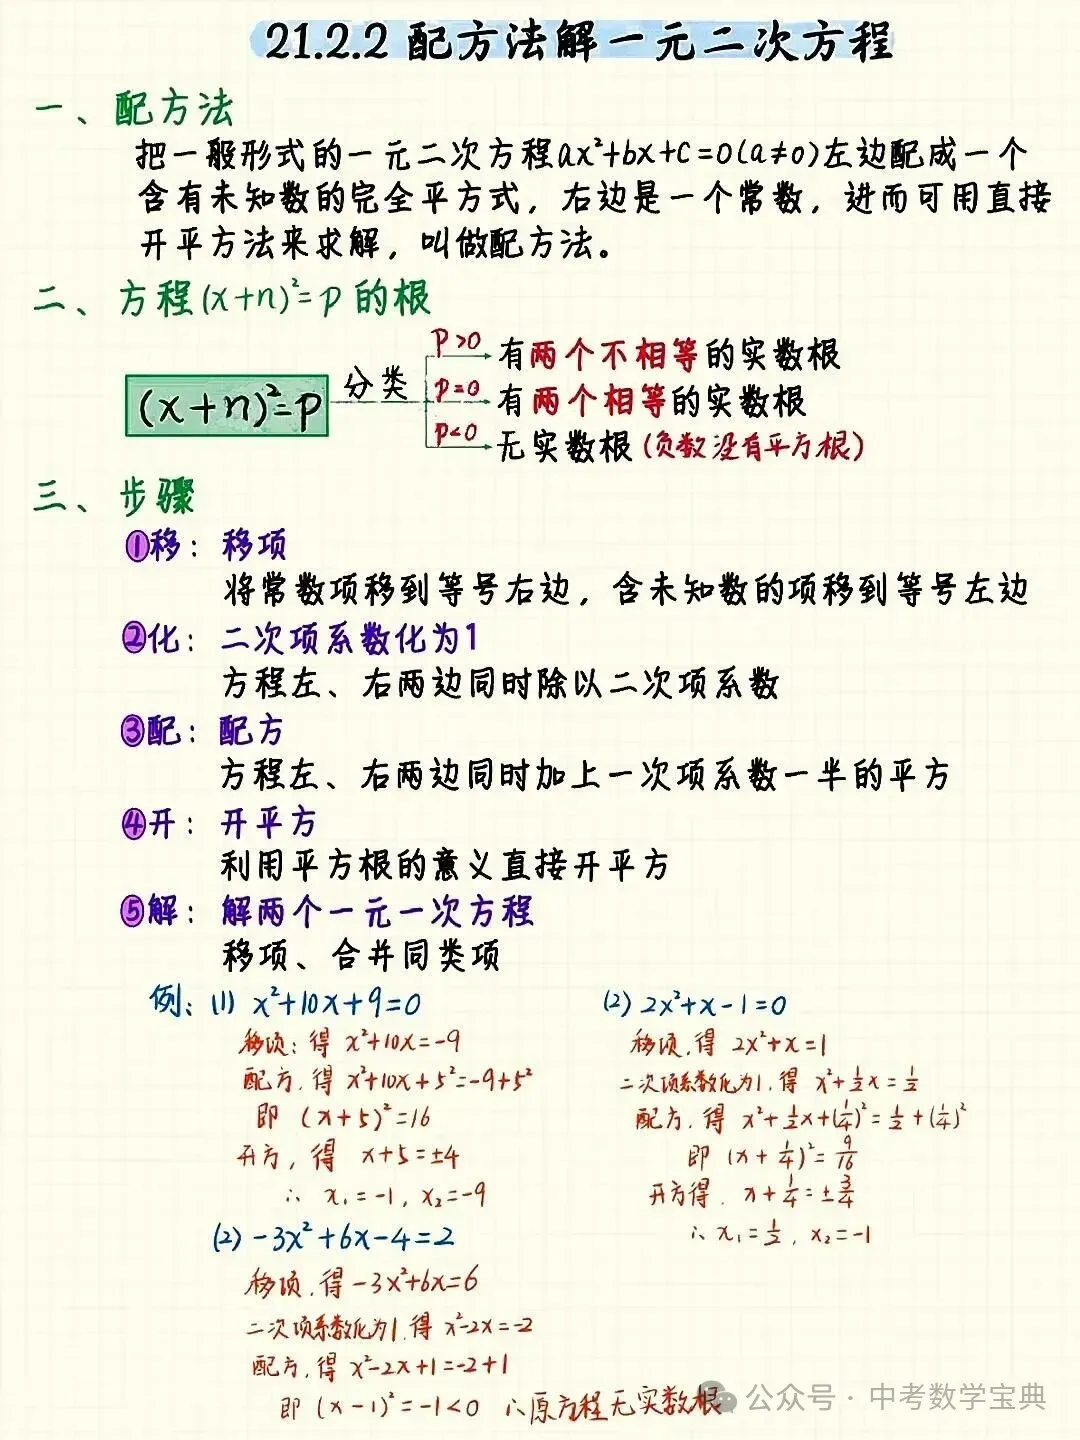 21.2.2 配方法解一元二次方程
一、配方法
把一般形式的一元二次方程ax²+bx+c=0(a≠0)左边配成一个
含有未知数的完全平方式，右边是一个常数，进而可用直接
开平方法来求解，叫做配方法。
二、方程(x+n)²=p的根
(x+n)²=p
分类
p>0
有两个不相等的实数根
p=0
有两个相等的实数根
p<0
无实数根(负数没有平方根)
三、步骤
①移：移项
将常数项移到等号右边，含未知数的项移到等号左边
②化：二次项系数化为1
方程左、右两边同时除以二次项系数
③配：配方
方程左、右两边同时加上一次项系数一半的平方
④开：开平方
利用平方根的意义直接开平方
⑤解：解两个一元一次方程
移项、合并同类项
例：(1) x²+10x+9=0
移项：得 x²+10x=-9
配方，得 x²+10x+5²=-9+5²
即 (x+5)²=16
开方，得 x+5=±4
∴ x₁=-1, x₂=-9
(2) 2x²+x-1=0
移项，得 2x²+x=1
二次项系数化为1，得 x²+1/2x=1/2
配方，得 x²+1/2x+(1/4)²=1/2+(1/4)²
即 (x+1/4)²=9/16
开方得，x+1/4=±3/4
∴ x₁=1/2, x₂=-1
(2) -3x²+6x-4=2
移项，得 -3x²+6x=6
二次项系数化为1，得 x²-2x=-2
配方，得 x²-2x+1=-2+1
即 (x-1)²=-1<0 ∴原方程无实数根
公众号·中考数学宝典